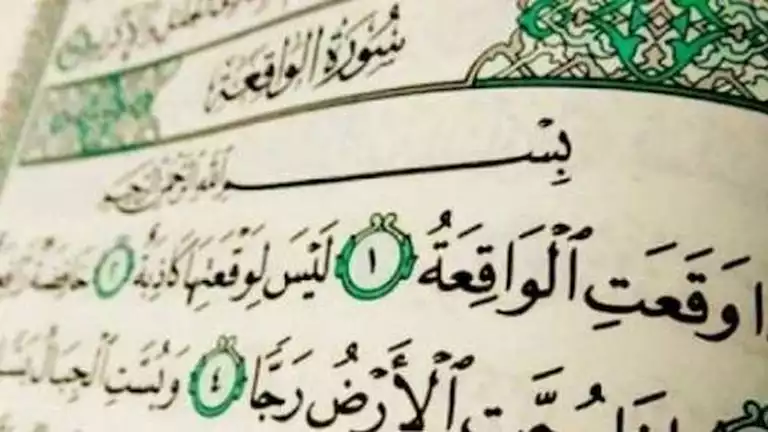 سُورَةُ الوَاقِعَة
بِسْمِ اللَّهِ الرَّحْمَٰنِ الرَّحِيمِ
وَقَعَتِ ٱلْوَاقِعَةُ ١ لَيْسَ لِوَقْعَتِهَا كَاذِبَةٌ ٢ خَافِضَةٌ
رُجَّتِ ٱلْأَرْضُ رَجًّا ٤ وَبُسَّتِ ٱلْجِبَالُ